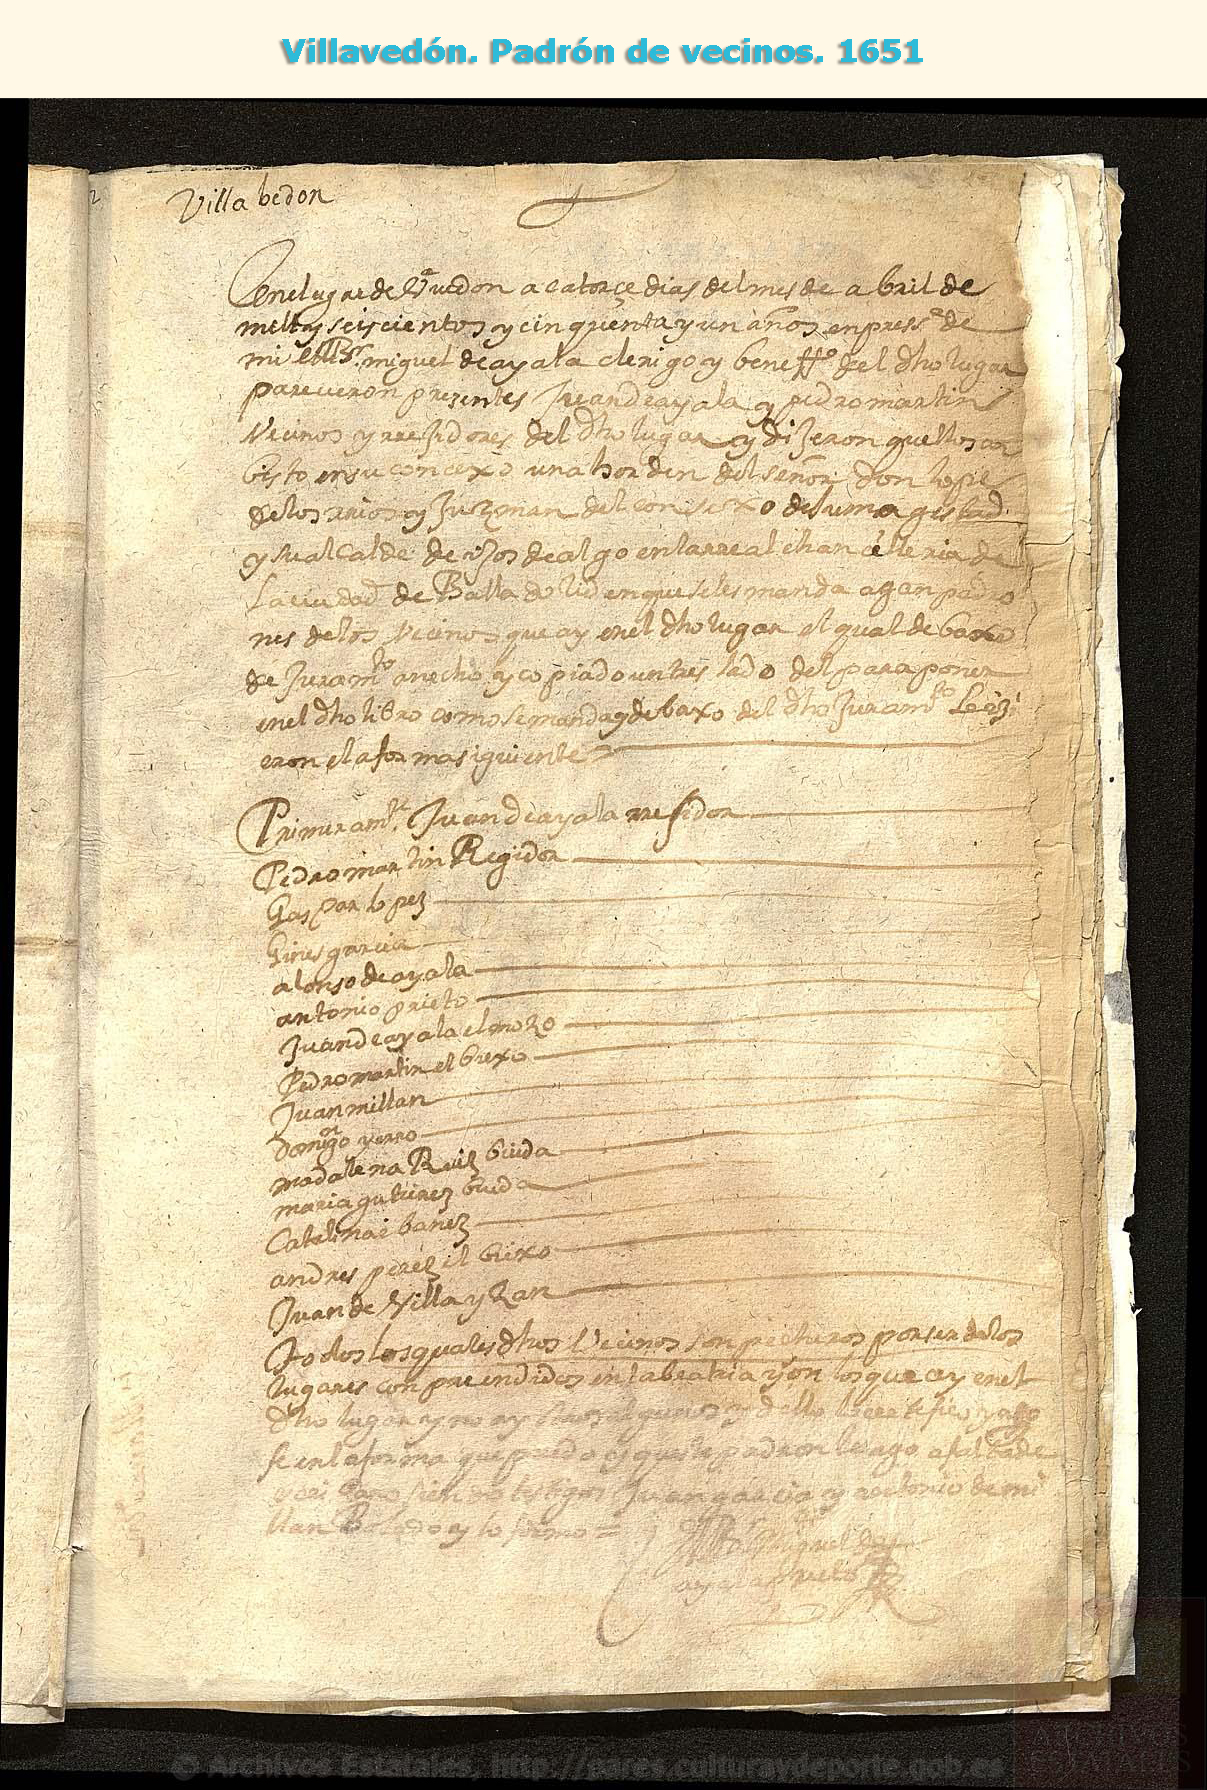 Villavedón. Padrón de vecinos. 1651
Villa bedon
En el lugar de Va vedon a catorçe dias del mes de abril de
mill y seiscientos y cinquenta y un años en press.a de
mi miguel de ayala clerigo y benefdo del dho lugar
parecieron presentes Juan de ayala y pedro martin
Vecinos y rrejidores del dho lugar y dijeron que ellos an
bisto en su concexo una horden del señor don lope
de los rrios y Juzman del consexo de su magestad
y su alcalde de ijos de algo en la rreal chancilleria de
la ciudad de Balladolid en que se les manda agan padro
nes de los Vecinos que ay en el dho lugar el qual debaxo
de Juramto an echo y copiado un tres lado del para poner
en el dho libro como se manda y debaxo del dho Juramto le izi
eron el a forma siguiente =
Primeramte Juan de ayala rrejidor
Pedro martin Regidor
Gaspar lopez
Gines garcia
alonso de ayala
antonio prieto
Juan de ayala el mozo
Pedro martin el biexo
Juan millan
domigo yerro
madalena Ruiz biuda
maria gutierez biuda
Catalina ibanez
andres perez el biexo
Juan de Villayzan
todos los quales dhos Vecinos son pecheros por ser de los
lugares conpreendidos en la beatria y son los que ay en el
dho lugar y no ay otros algunos y dello
fe en la forma que puedo y queste padron le ago a falta de
siendo testigos Juan garcia y antonio de mi
llan y lo firmo =
miguel de
ayala prieto
© Archivos Estatales, http://pares.culturaydeporte.gob.es
ARCHIVOS
ESTATALES